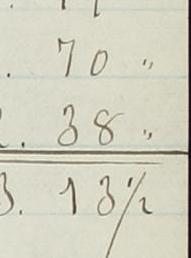 . 70 "
. 38 "
3. 13 1/2